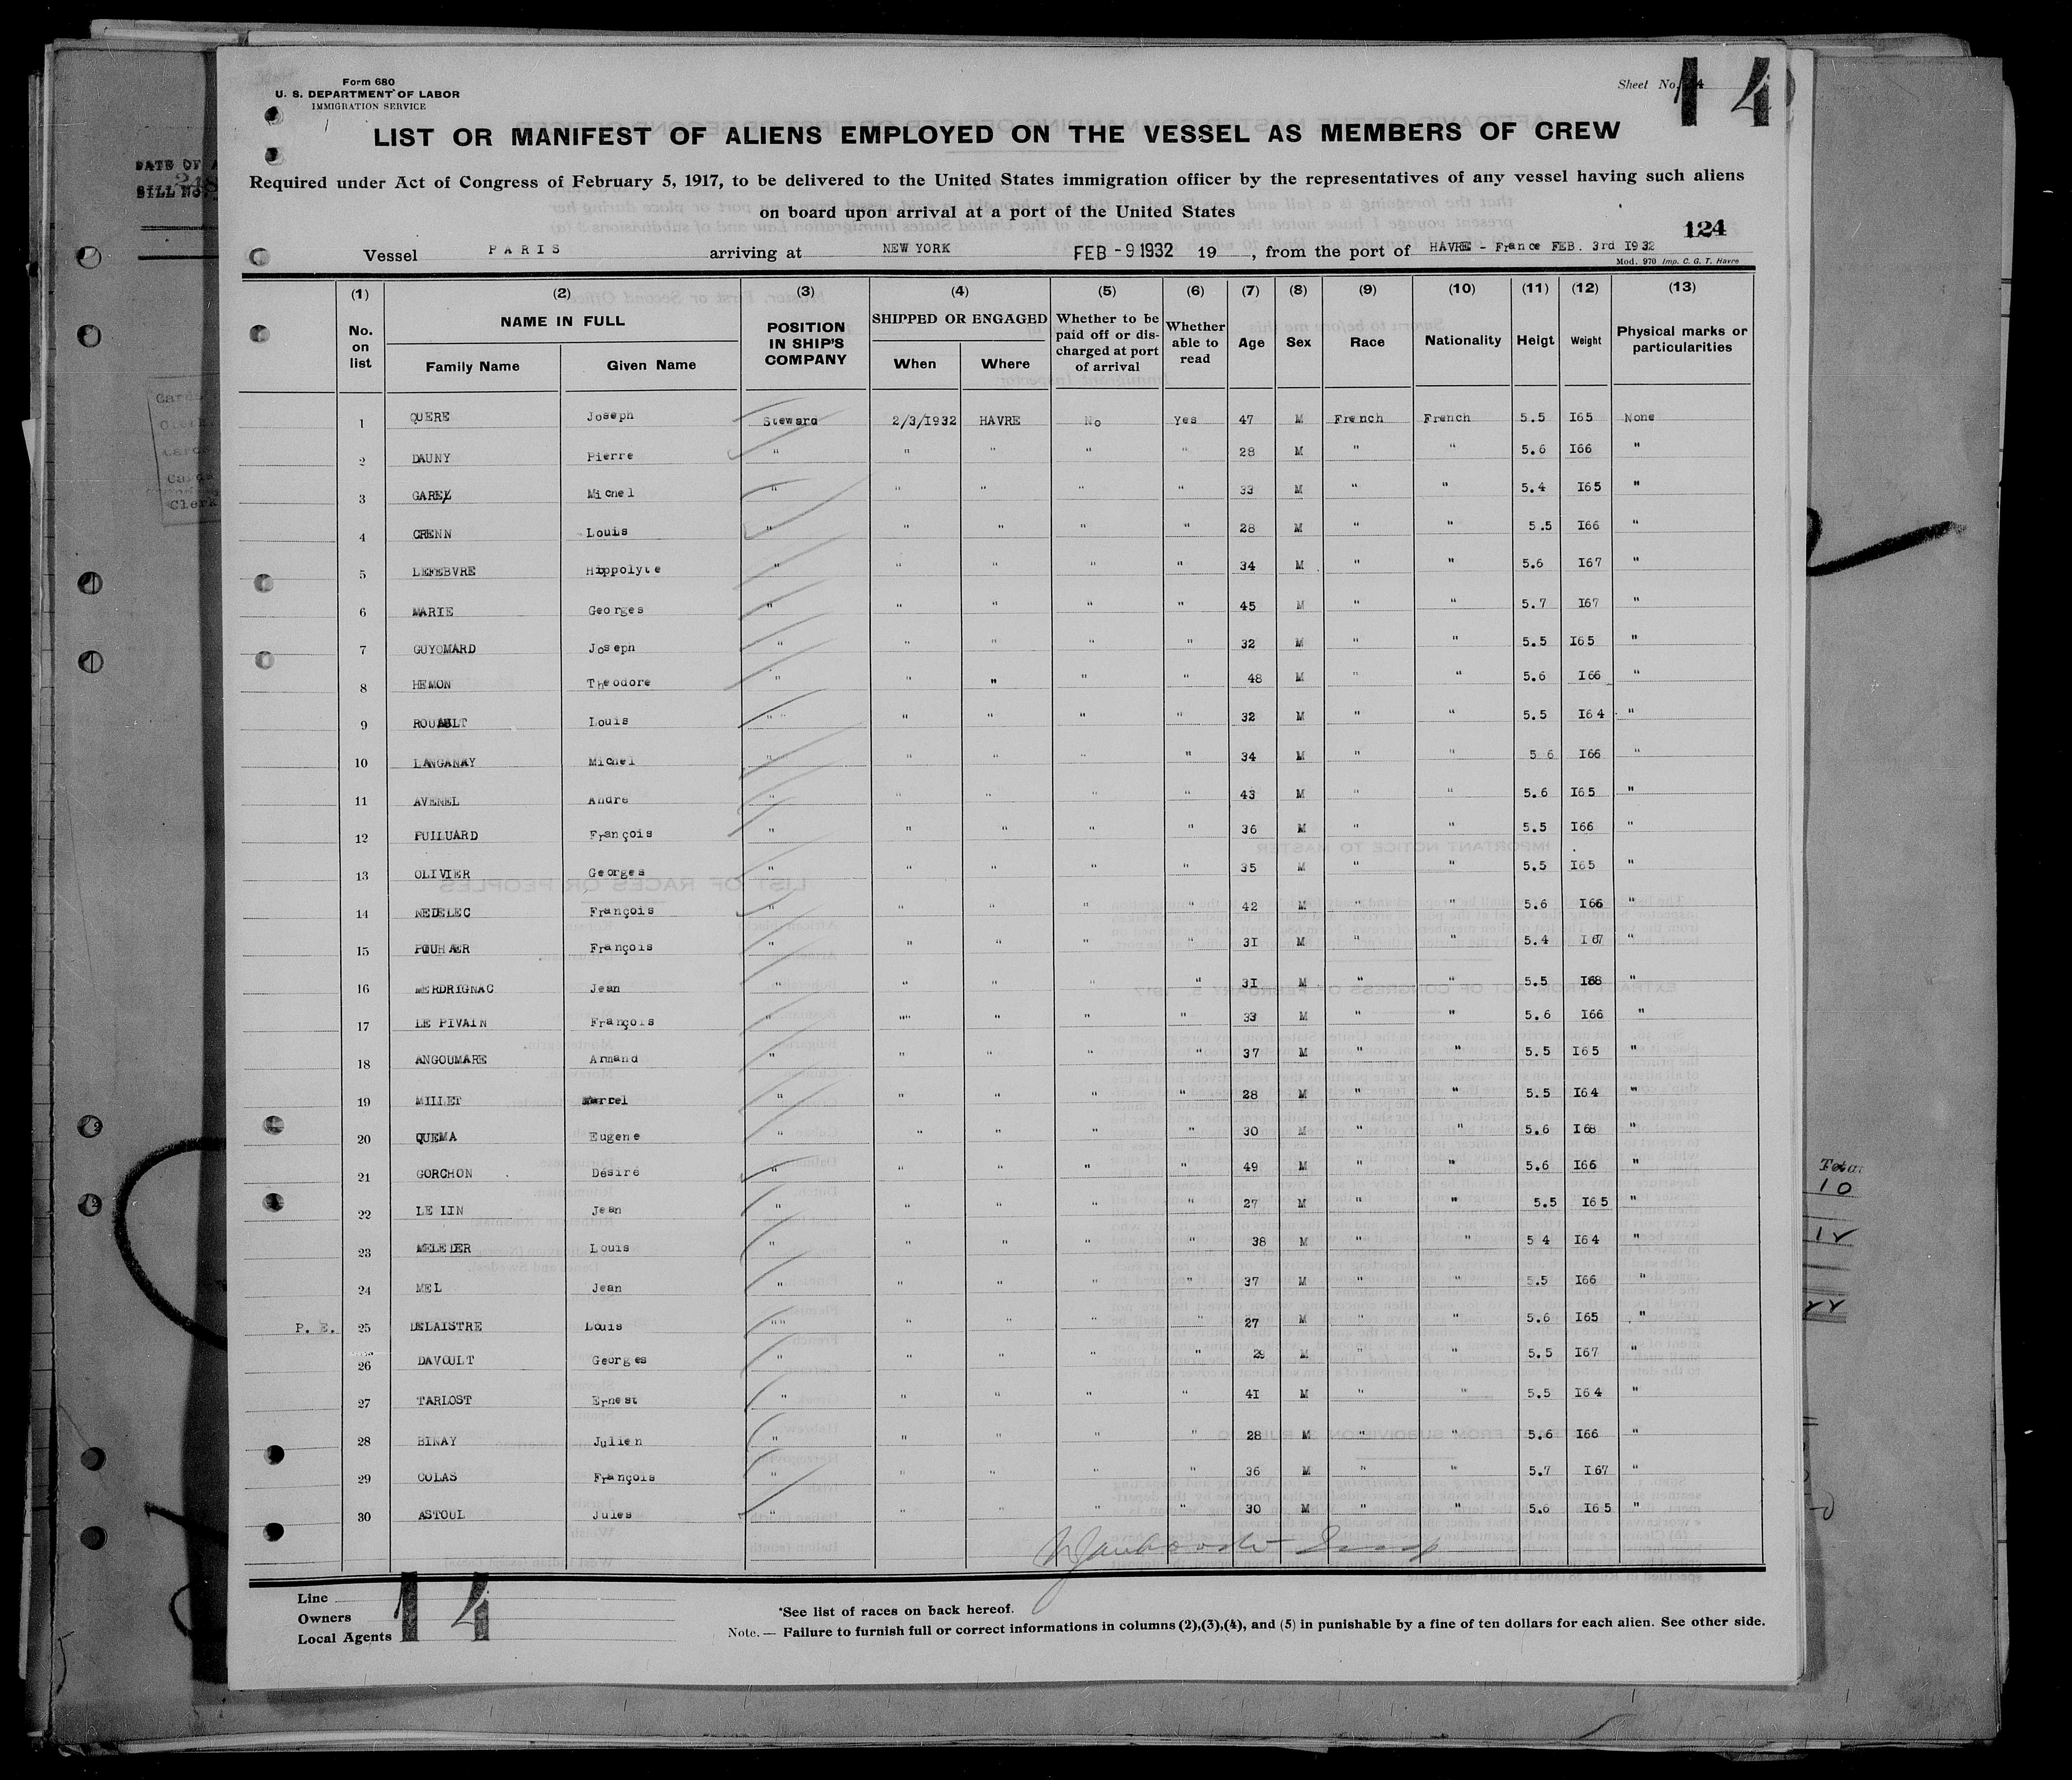 Form 680
U. S. DEPARTMENT OF LABOR
IMMIGRATION SERVICE
Sheet No. 14
14
LIST OR MANIFEST OF ALIENS EMPLOYED ON THE VESSEL AS MEMBERS OF CREW
Required under Act of Congress of February 5, 1917, to be delivered to the United States immigration officer by the representatives of any vessel having such aliens
on board upon arrival at a port of the United States
124
Vessel PARIS arriving at NEW YORK FEB - 9 1932 19 , from the port of HAVRE - France FEB. 3rd I932
Mod. 970 Imp. C. G. T. Havre
(1) (2) (3) (4) (5) (6) (7) (8) (9) (10) (11) (12) (13)
No. on list NAME IN FULL Family Name Given Name POSITION IN SHIP'S COMPANY SHIPPED OR ENGAGED When Where Whether to be paid off or discharged at port of arrival Whether able to read Age Sex Race Nationality Heigt Weight Physical marks or particularities
1 QUERE Joseph Steward 2/3/I932 HAVRE No Yes 47 M French French 5.5 I65 None
2 DAUNY Pierre " " " " " 28 M " " 5.6 I66 "
3 GAREL Michel " " " " " 33 M " " 5.4 I65 "
4 CRENN Louis " " " " " 28 M " " 5.5 I66 "
5 LEFEBVRE Hippolyte " " " " " 34 M " " 5.6 I67 "
6 MARIE Georges " " " " " 45 M " " 5.7 I67 "
7 GUYOMARD Joseph " " " " " 32 M " " 5.5 I65 "
8 HEMON Theodore " " " " " 48 M " " 5.6 I66 "
9 ROUAULT Louis " " " " " " 32 M " " 5.5 I64 "
10 LANGANAY Michel " " " " " 34 M " " 5 6 I66 "
11 AVENEL Andre " " " " " 43 M " " 5.6 I65 "
12 PUILUARD François " " " " " 36 M " " 5.5 I66 "
13 OLIVIER Georges " " " " " 35 M " " 5.5 I65 "
14 NEDELEC François " " " " " 42 M " " 5.6 I66 "
15 POUHAER François " " " " " 3I M " " 5.4 I67 "
16 MERDRIGNAC Jean " " " " " 3I M " " 5.5 I68 "
17 LE PIVAIN François " "" " " " 33 M " " 5.6 I66 "
18 ANGOUMARE Armand " " " " " 37 M " " 5.5 I65 "
19 MILLET Marcel " " " " " 28 M " " 5.5 I64 "
20 QUEMA Eugene " " " " " 30 M " " 5.6 I68 "
21 GORCHON Désiré " " " " " 49 M " " 5.6 I66 "
22 LE LIN Jean " " " " " 27 M " " 5.5 I65 "
23 MELEDER Louis " " " " " 38 M " " 5 4 I64 "
24 MEL Jean " " " " " 37 M " " 5.5 I66 "
P. E. 25 DELAISTRE Louis "" " " " " 27 M " " 5.6 I65 "
26 DAVOULT Georges " " " " " 29 M " " 5.5 I67 "
27 TARLOST Ernest " " " " " 4I M " " 5.5 I64 "
28 BINAY Julien " " " " " 28 M " " 5.6 I66 "
29 COLAS François " " " " " 36 M " " 5.7 I67 "
30 ASTOUL Jules " " " " " 30 M " " 5.6 I65 "
Line
Owners
Local Agents
14
*See list of races on back hereof.
Note. — Failure to furnish full or correct informations in columns (2),(3),(4), and (5) in punishable by a fine of ten dollars for each alien. See other side.
DATE OF
BILL NO.
Cards
Clerk
Cards
Clerk
Total
10